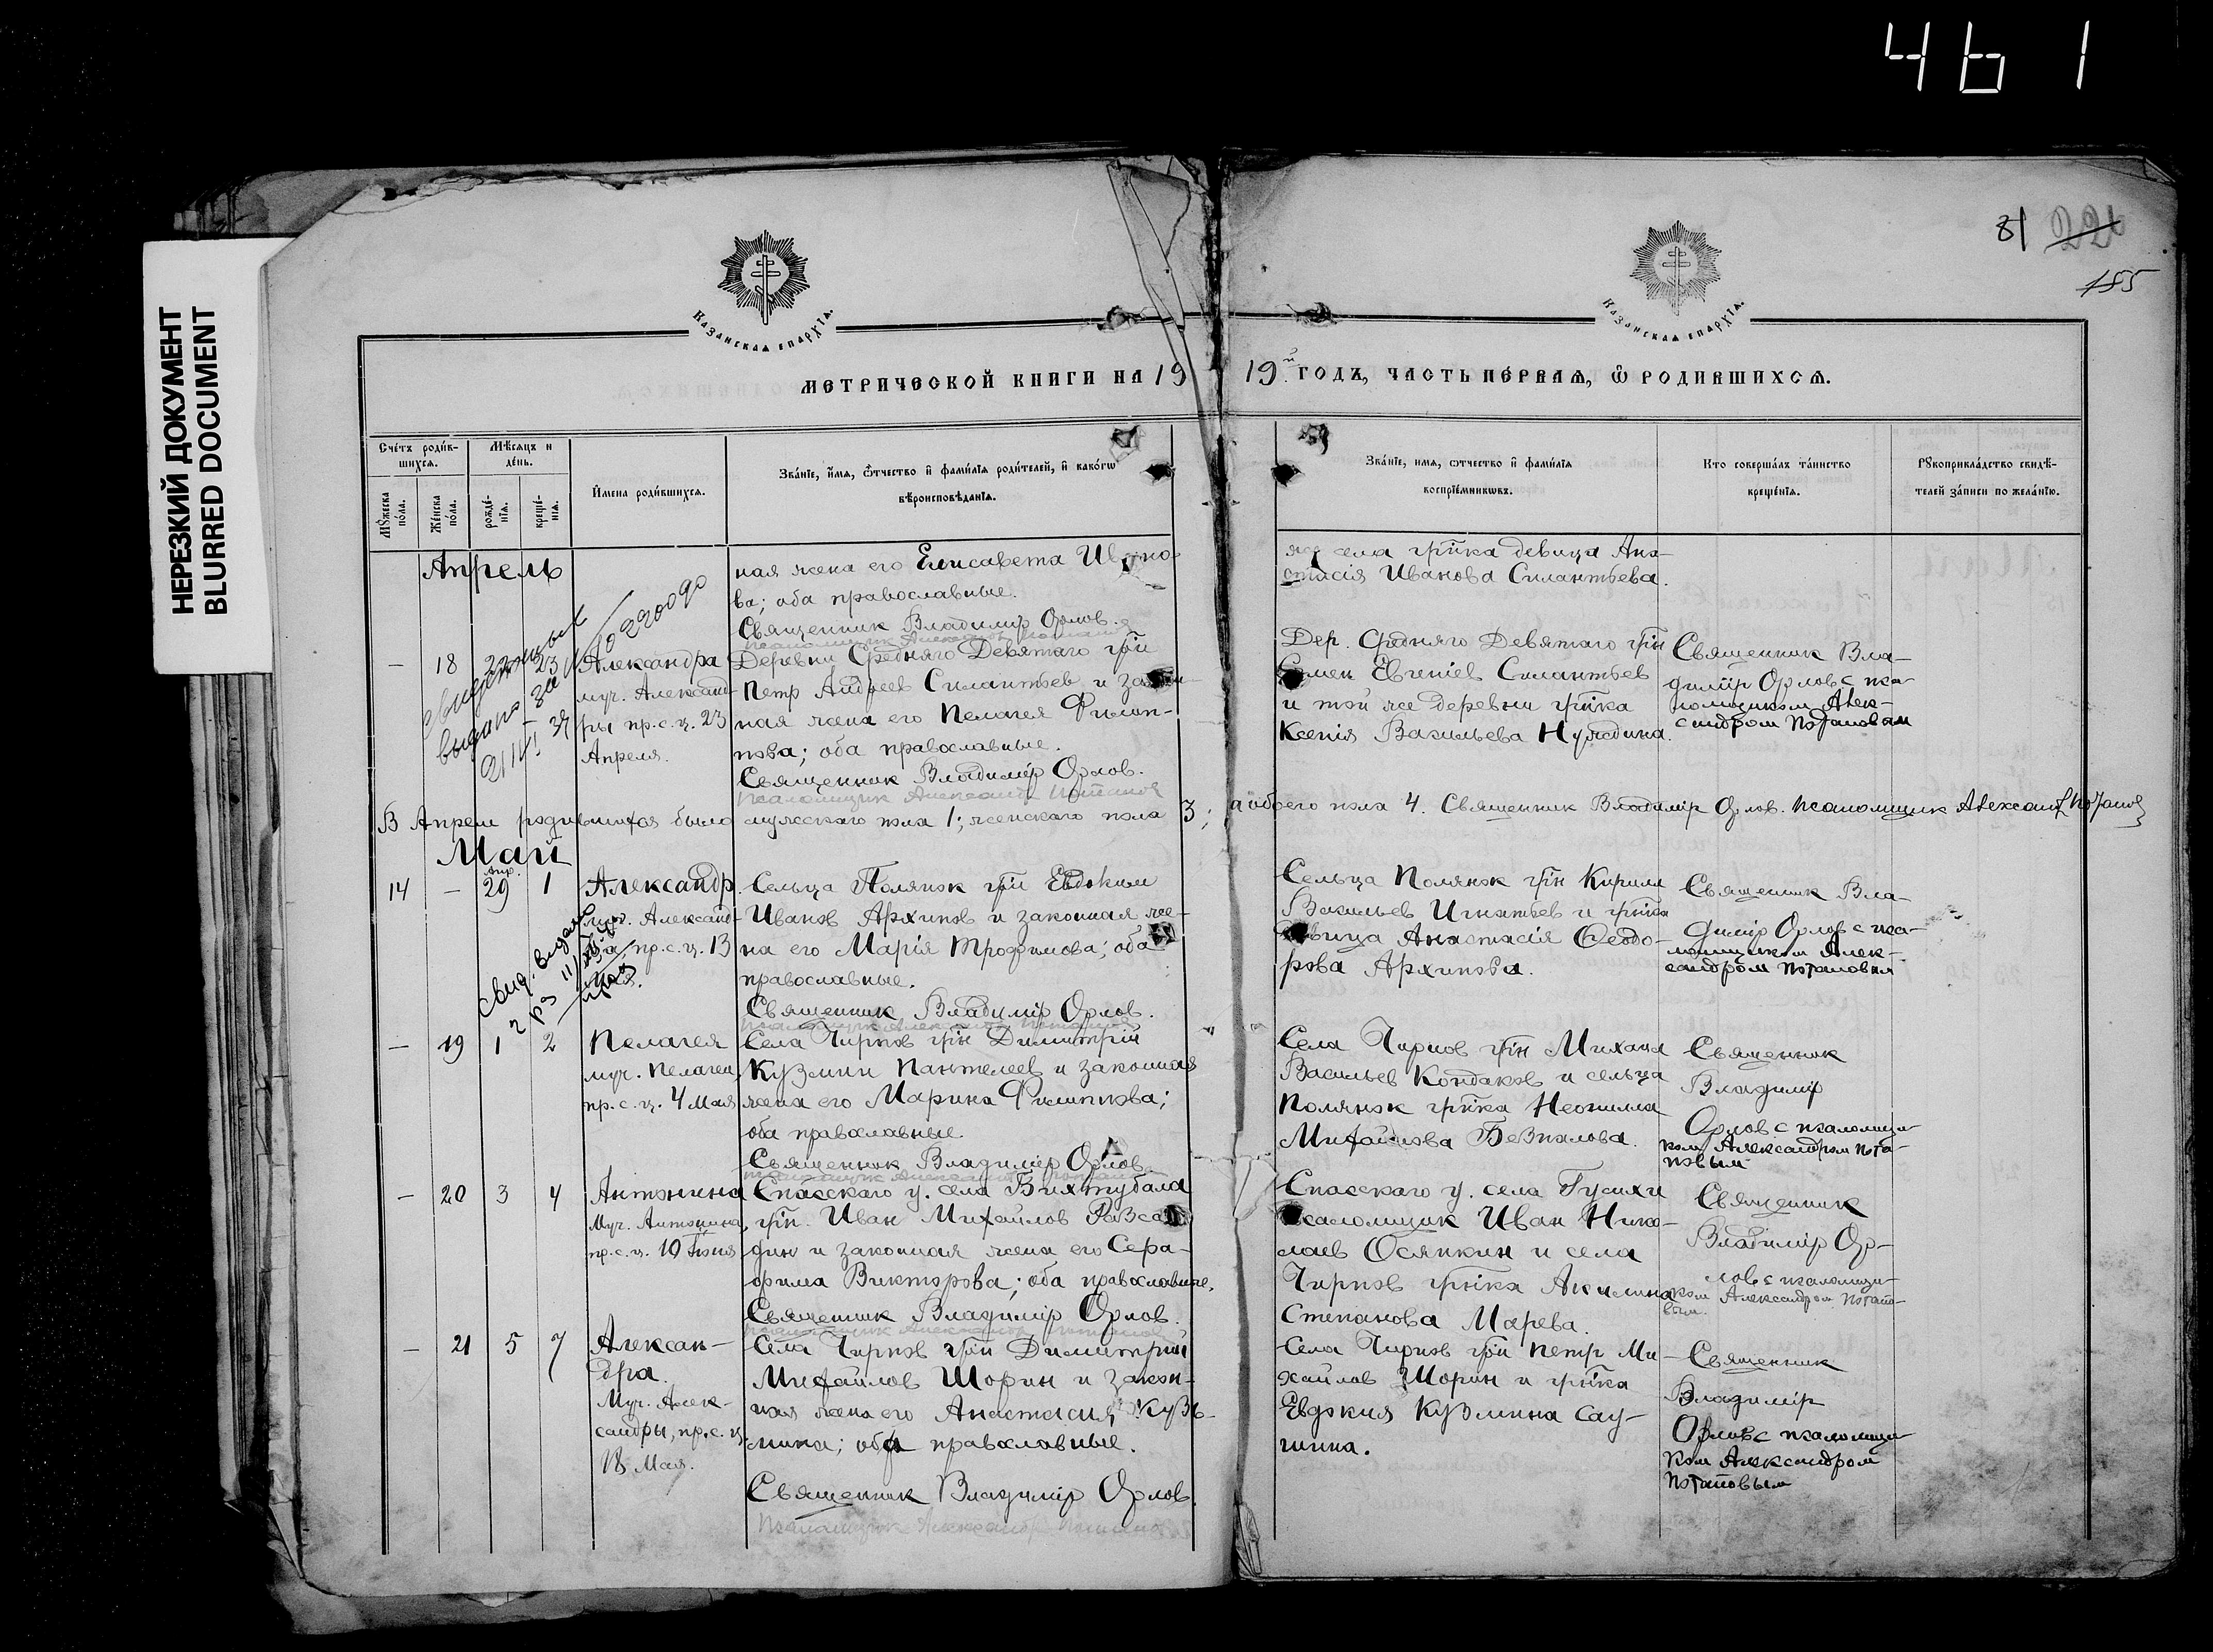 461
НЕРЕЗКИЙ ДОКУМЕНТ
BLURRED DOCUMENT
81 226
185
Казанская епархїа.
Казанская епархїа.
МЕТРИЧЕСКОЙ КНИГИ НА 19
19й ГОДЪ, ЧАСТЬ ПЕРВАЯ, Ѿ РОДИВШИХСЯ.
Счетъ родив-
шихся.
Мѣсяцъ и
день.
Мужеска
пола.
Женска
пола.
рожде-
нїя.
креще-
нїя.
Имена родившихся.
Званїе, имя, ѿтчество и фамилїа родителей, и какогѡ
вѣроисповѣданїя.
Званїе, имя, ѡтчество и фамилїа
воспрїемникѡвъ.
Кто совершалъ таинство
крещенїя.
Рукоприкладство свидѣ-
телей записи по желанїю.
Апрель
ная жена его Елисавета Ивано-
ва; оба православные.
Священник Владимір Орлов.
же села гр̃ка девица Ана-
стасія Иванова Силантьева.
— 18 22 23 Александра
муч. Александ-
ры пр.с.ц. 23
Апреля.
выдано за
Деревни Средняго Девятаго гр̃н
Петр Андреев Силантьев и закон-
ная жена его Пелагея Филип-
пова; оба православные.
Священник Владимір Орлов.
Псаломщик Александр Потапов
Дер. Средняго Девятаго гр̃н
Евгеніев Силантьев
и той же деревни гр̃ка
Ксенія Васильева Нуждина.
Священник Вла-
димір Орлов с пса-
ломщиком Алек-
сандром Потаповым
В Апреле родившихся было мужескаго пола 1; женскаго пола 3; а обоего пола 4. Священник Владимір Орлов. Псаломщик Александр Потапов
Май
14 — апр. 29 1 Александр
муч. Александ-
ра, пр.с.ц. 13
Мая.
свид. выдано
Сельца Полянок гр̃н Евдоким
Иванов Архипов и законная же-
на его Марія Трофимова; оба
православные.
Священник Владимір Орлов.
Псаломщик Александр Потапов
Сельца Полянок гр̃н Кирилл
Васильев Игнатьев и гр̃ка
девица Анастасія Феодо-
рова Архипова.
Священник Вла-
димір Орлов с пса-
ломщиком Алек-
сандром Потаповым
— 19 1 2 Пелагея
муч. Пелагеи,
пр.с.ц. 4 Мая
Села Чирпов гр̃н Димитрій
Кузмин Пантелеев и законная
жена его Марина Филиппова;
оба православные.
Священник Владимір Орлов.
Псаломщик Александр Потапов
Села Чирпов гр̃н Михаил
Васильев Кондаков и сельца
Полянок гр̃ка Неонилла
Михайлова Безпалова.
Священник
Владимір
Орлов с псаломщи-
ком Александром Пота-
повым
— 20 3 4 Антонина
Муч. Антонина,
пр.с.ц. 10 Іюня
Спасскаго у. села Бихтубала
гр̃н. Иван Михайлов Разса-
дин и законная жена его Сера-
фима Викторова; оба православные.
Священник Владимір Орлов.
Псаломщик Александр Потапов
Спасскаго у. села Гусихи
псаломщик Иван Нико-
лаев Осяпкин и села
Чирпов гр̃нка Акилина
Степанова Марева.
Священник
Владимір Ор-
лов с псаломщи-
ком Александром Потапо-
вым.
— 21 5 7 Алексан-
дра.
Муч. Алек-
сандры, пр.с.ц.
18 Мая.
Села Чирпов гр̃н Димитрий
Михайлов Шорин и закон-
ная жена его Анастасия Кузь-
мина; оба православные.
Священник Владимір Орлов.
Псаломщик Александр Потапов
Села Чирпов гр̃н Петр Ми-
хайлов Шорин и гр̃нка
Евдокия Кузмина Сау-
шина.
Священник
Владимір
Орлов с псаломщи-
ком Александром
Потаповым